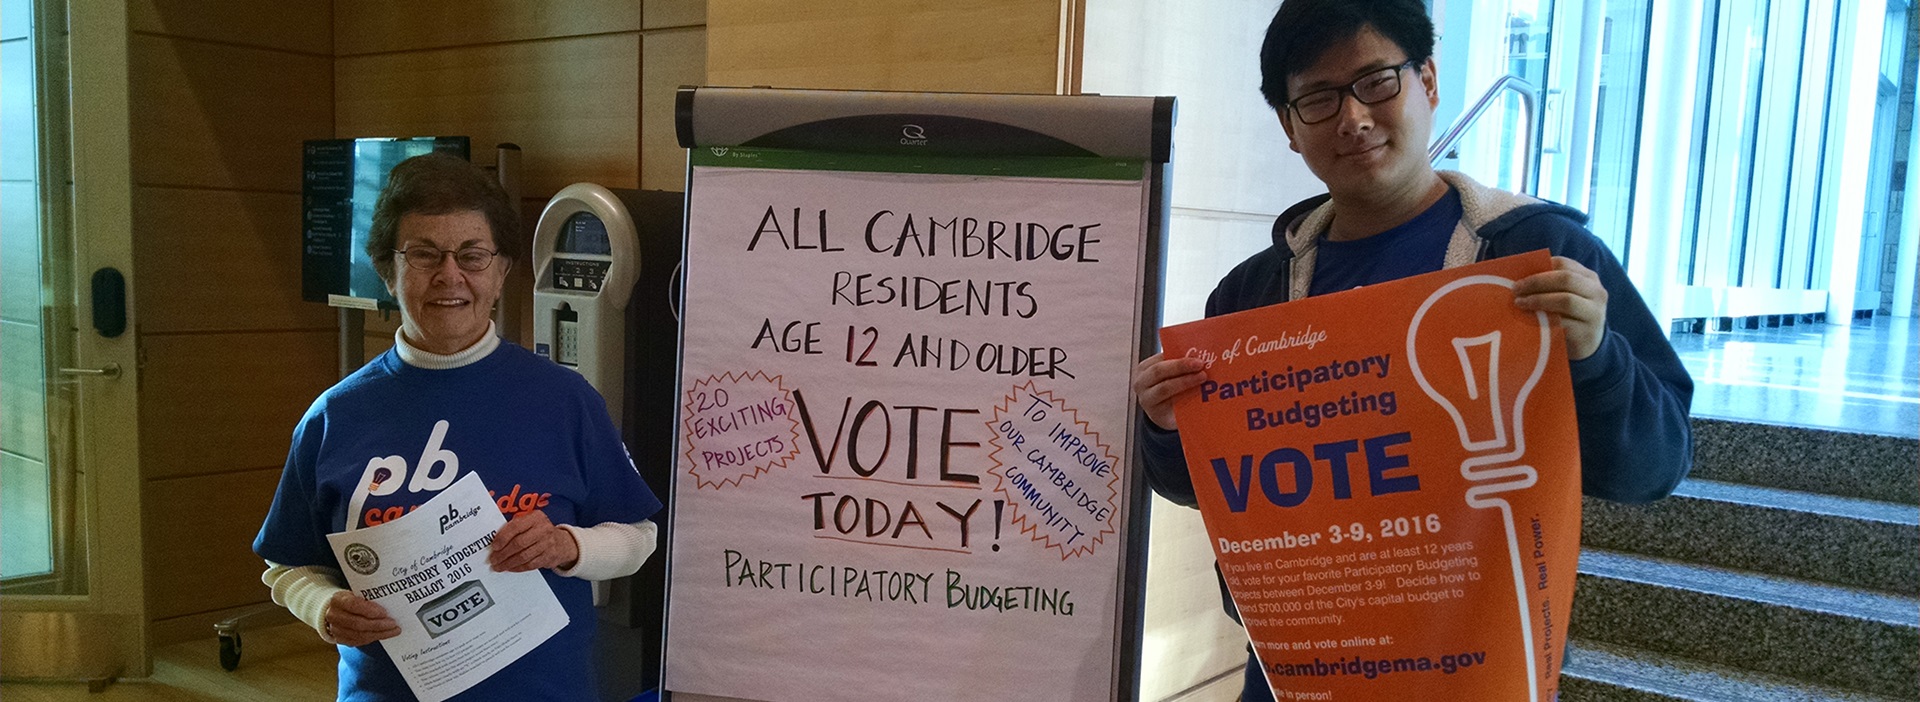 pb
cambridge
pb
cambridge
City of Cambridge
PARTICIPATORY BUDGETING
BALLOT 2016
VOTE
Voting Instructions:
INSTRUCTIONS
1 2 3 4
Quartet
ALL CAMBRIDGE
RESIDENTS
AGE 12 AND OLDER
20
EXCITING
PROJECTS
VOTE
TODAY!
TO IMPROVE
OUR CAMBRIDGE
COMMUNITY
PARTICIPATORY BUDGETING
City of Cambridge
Participatory
Budgeting
VOTE
December 3-9, 2016
If you live in Cambridge and are at least 12 years
vote for your favorite Participatory Budgeting
projects between December 3-9! Decide how to
$700,000 of the City's capital budget to
the community.
more and vote online at:
.cambridgema.gov
in person!
Real Projects. Real Power.